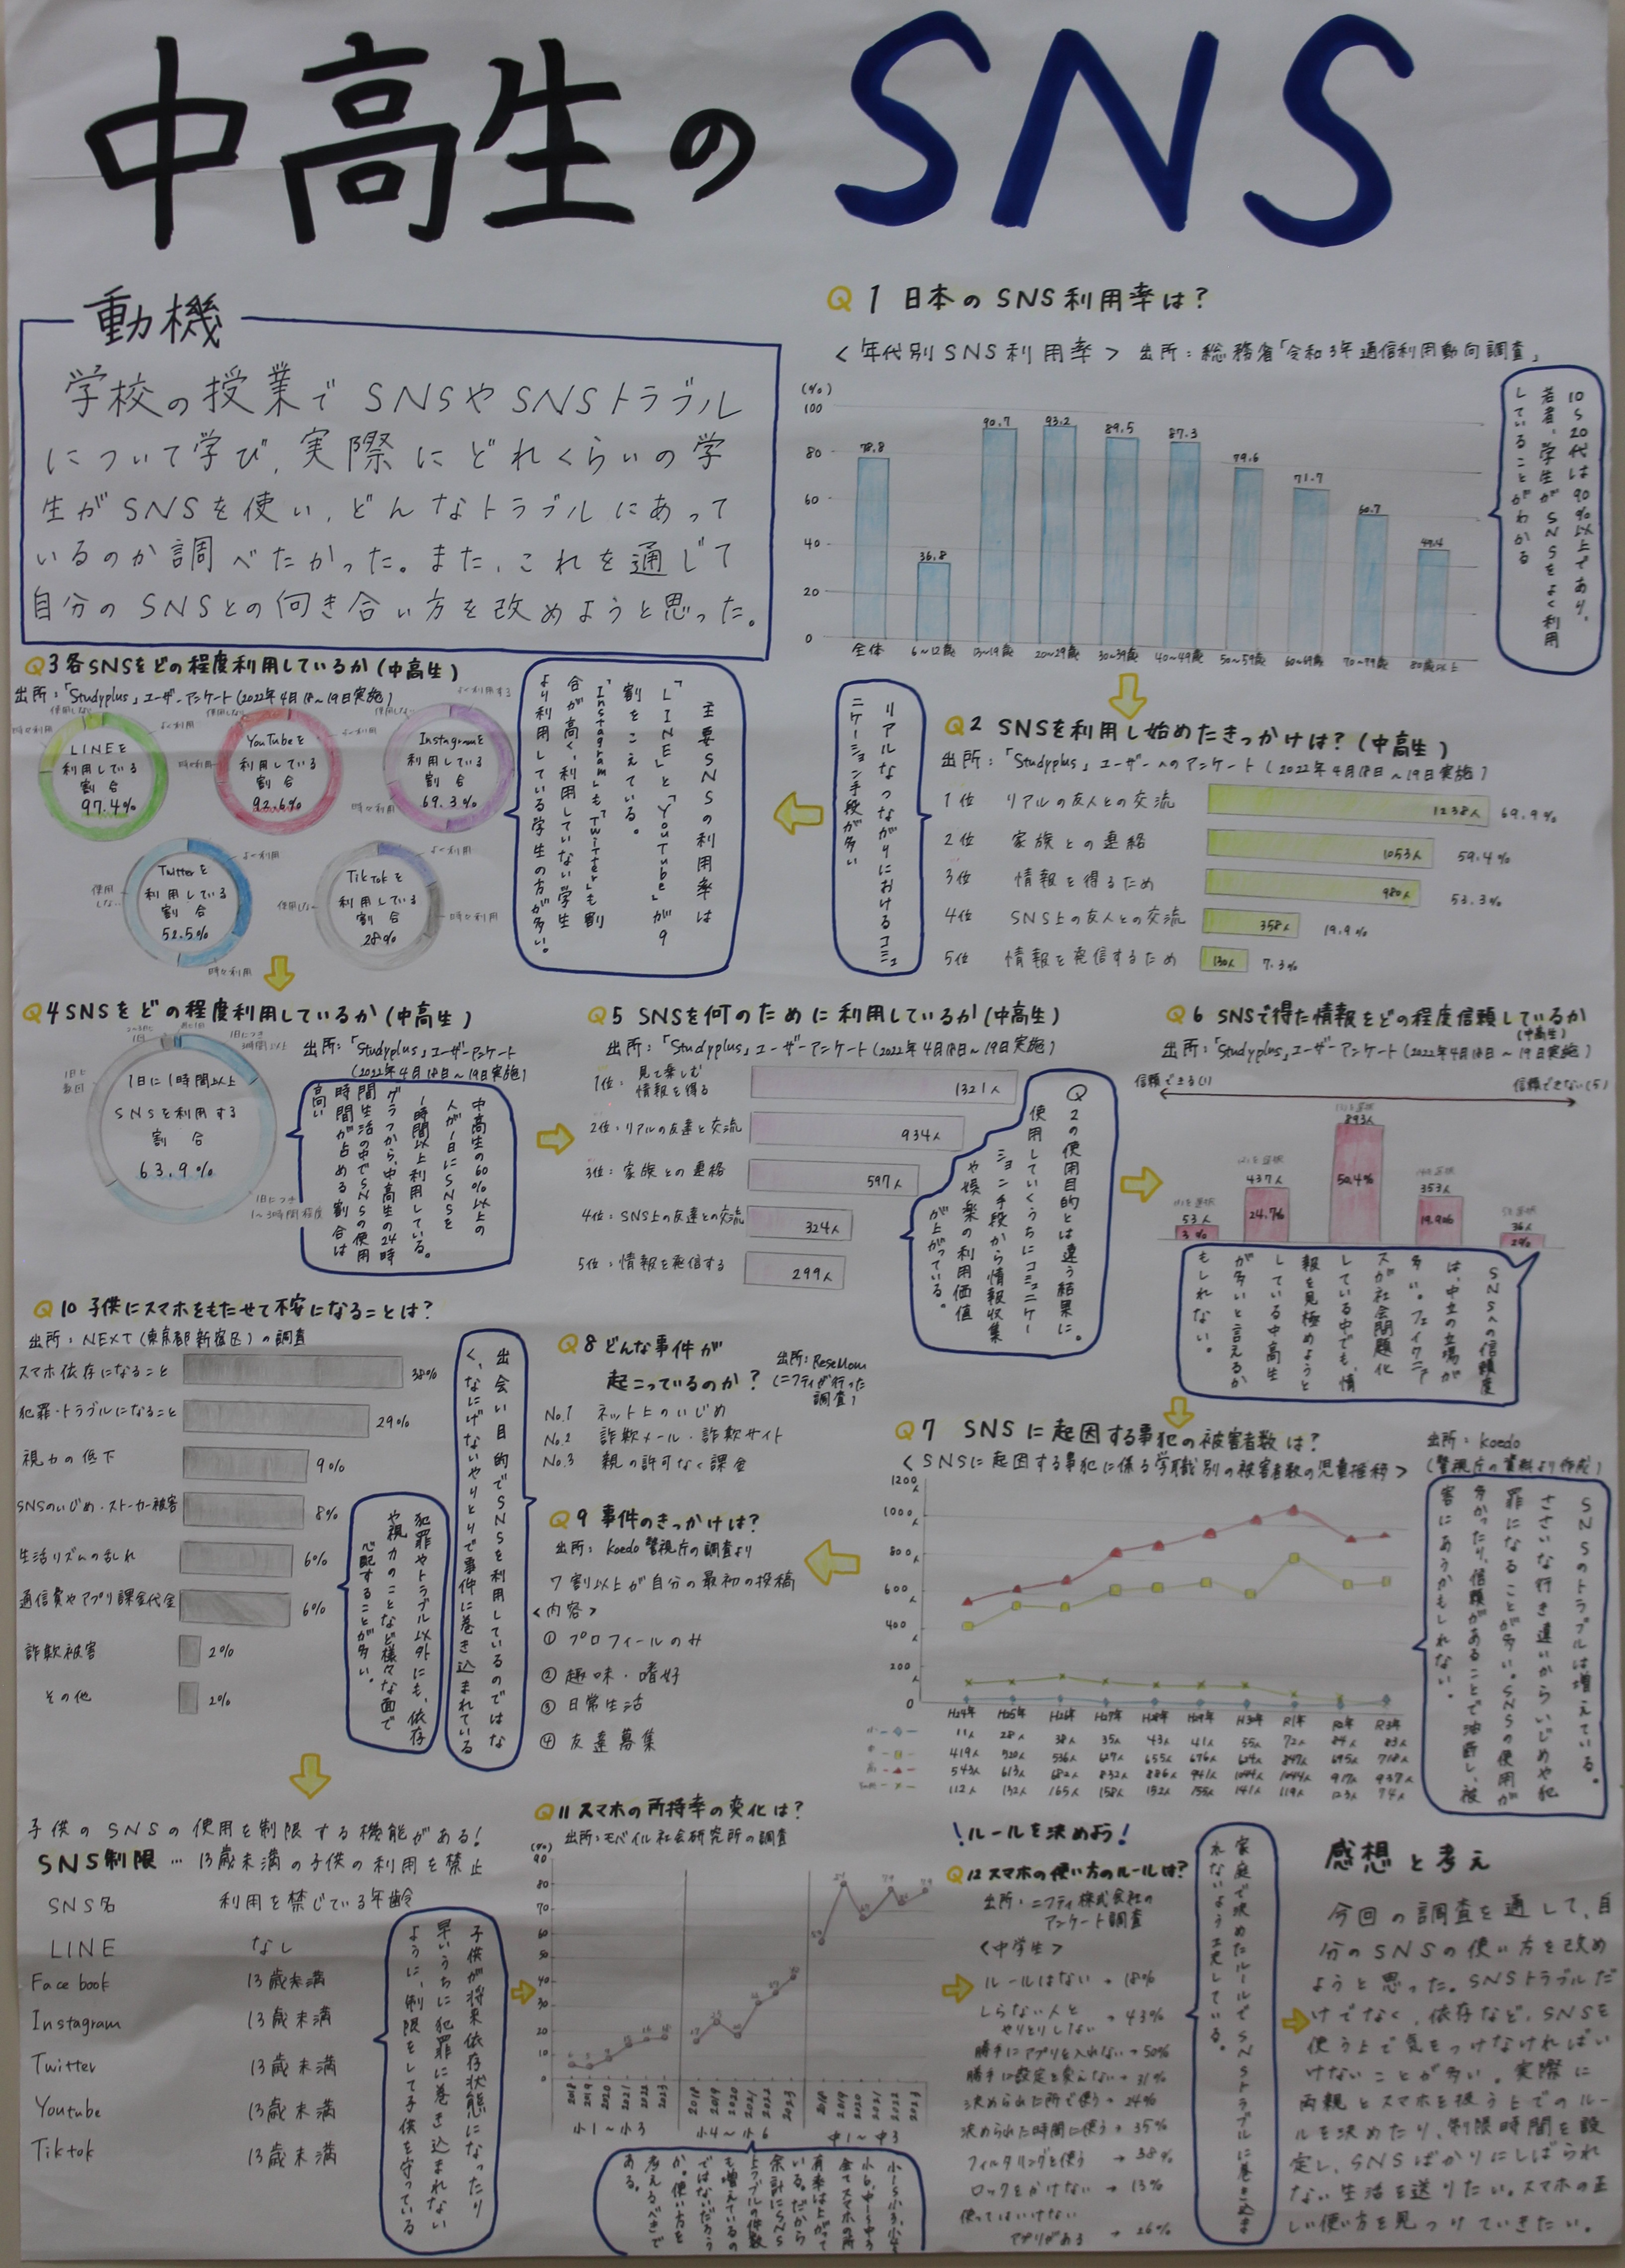 中高生のSNS
動機
学校の授業でSNSやSNSトラブル
について学び、実際にどれくらいの学
生がSNSを使い、どんなトラブルにあって
いるのか調べたかった。また、これを通じて
自分のSNSとの向き合い方を改めようと思った。
Q1 日本のSNS利用率は?
<年代別SNS利用率> 出所:総務省「令和3年通信利用動向調査」
(%)
100
80
60
40
20
0
78.8
36.8
90.7
93.2
89.5
87.3
79.6
71.7
60.7
全体
6~12歳
13~19歳
20~29歳
30~39歳
40~49歳
50~59歳
60~69歳
70~79歳
80歳以上
10~20代は90%以上であり、
若者、学生がSNSをよく利用
していることがわかる
Q2 SNSを利用し始めたきっかけは?(中高生)
出所:「Studyplus」ユーザーへのアンケート(2022年4月18日~19日実施)
1位 リアルの友人との交流 1238人 69.9%
2位 家族との連絡 1053人 59.4%
3位 情報を得るため 980人 53.3%
4位 SNS上の友人との交流 358人 19.9%
5位 情報を発信するため 130人 7.3%
リアルなつながりにおけるコミュ
ニケーション手段が多い
Q3 各SNSをどの程度利用しているか(中高生)
出所:「Studyplus」ユーザーアンケート(2022年4月18~19日実施)
LINEを
利用している
割合
97.4%
YouTubeを
利用している
割合
92.6%
Instagramを
利用している
割合
69.3%
Twitterを
利用している
割合
52.5%
よく利用
使用しない
時々利用
TikTokを
利用している
割合
28%
よく利用
使用しない
時々利用
主要SNSの利用率は
「LINE」と「YouTube」が9
割をこえている。
「Instagram」も「Twitter」も割
合が高く、利用していない学生
より利用している学生の方が多い。
Q4 SNSをどの程度利用しているか(中高生)
出所:「Studyplus」ユーザーアンケート
(2022年4月18日~19日実施)
1日に1時間以上
SNSを利用する
割合
63.9%
1日につき
3時間以上
1日につき
1~3時間程度
1日に
数回
中高生の60%以上の
人が1日にSNSを
1時間以上利用している。
グラフから、中高生の24時
間生活の中でSNSの使用
時間が占める割合は
高い
Q5 SNSを何のために利用しているか(中高生)
出所:「Studyplus」ユーザーアンケート(2022年4月18日~19日実施)
1位:見て楽しむ
情報を得る 1321人
2位:リアルの友達と交流 934人
3位:家族との連絡 597人
4位:SNS上の友達との交流 324人
5位:情報を発信する 299人
Q2の使用目的とは違う結果に。
使用していくうちにコミュニケー
ション手段から情報収集
や娯楽の利用価値
が上がっている。
Q6 SNSで得た情報をどの程度信頼しているか
(中高生)
出所:「Studyplus」ユーザーアンケート(2022年4月18日~19日実施)
信頼できる(1) 信頼できない(5)
53人
3%
437人
24.7%
893人
50.4%
353人
19.9%
36人
2%
SNSへの信頼度
は、中立の立場が
多い。フェイクニュー
スが社会問題化
している中でも、情
報を見極めようと
している中高生
が多いと言えるか
もしれない。
Q7 SNSに起因する事犯の被害者数は?
出所:koedo
(警視庁の資料より作成)
<SNSに起因する事犯に係る学職別の被害者数の児童推移>
1200人
1000人
800人
600人
400人
200人
0
H24年 H25年 H26年 H27年 H28年 H29年 H30年 R1年 R2年 R3年
小 11人 28人 38人 35人 43人 41人 55人 72人 84人 83人
中 419人 520人 536人 627人 655人 676人 624人 847人 695人 718人
高 543人 613人 682人 832人 886人 941人 1044人 1044人 917人 937人
112人 132人 165人 158人 152人 155人 141人 119人 123人 74人
SNSのトラブルは増えている。
ささいな行き違いからいじめや犯
罪になることが多い。SNSの使用が
多かったり、信頼があることで油断し、被
害にあうかもしれない。
Q8 どんな事件が
起こっているのか?
出所:ReseMom
(ニフティが行った
調査)
No.1 ネット上のいじめ
No.2 詐欺メール・詐欺サイト
No.3 親の許可なく課金
Q9 事件のきっかけは?
出所:koedo 警視庁の調査より
7割以上が自分の最初の投稿
<内容>
① プロフィールのみ
② 趣味・嗜好
③ 日常生活
④ 友達募集
出会い目的でSNSを利用しているのではな
く、なにげないやりとりで事件に巻き込まれている
Q10 子供にスマホをもたせて不安になることは?
出所:NEXT(東京都新宿区)の調査
スマホ依存になること 38%
犯罪・トラブルになること 29%
視力の低下 9%
SNSのいじめ・ストーカー被害 8%
生活リズムの乱れ 6%
通信費やアプリ課金代金 6%
詐欺被害 2%
その他 2%
犯罪やトラブル以外にも、依存
や視力のことなど様々な面で
心配することが多い。
子供のSNSの使用を制限する機能がある!
SNS制限…13歳未満の子供の利用を禁止
SNS名 利用を禁じている年齢
LINE なし
Facebook 13歳未満
Instagram 13歳未満
Twitter 13歳未満
Youtube 13歳未満
Tiktok 13歳未満
子供が将来依存状態になったり
早いうちに犯罪に巻き込まれない
ように、制限をして子供を守っている
Q11 スマホの所持率の変化は?
出所:モバイル社会研究所の調査
(%)
90
80
70
60
50
40
30
20
10
0
2018 2019 2020 2021 2022 2023
2018 2019 2020 2021 2022 2023
2018 2019 2020 2021 2022 2023
小1~小3 小4~小6 中1~中3
小1~小3、小4~
小6、中1~中3
全てスマホの所
有率は上がって
いる。だから
余計にSNS
トラブルの件数
も増えているの
ではないだろう
か。使い方を
考えるべきで
ある。
!ルールを決めよう!
Q12 スマホの使い方のルールは?
出所:ニフティ株式会社の
アンケート調査
<中学生>
ルールはない → 18%
しらない人と
やりとりしない → 43%
勝手にアプリを入れない → 50%
勝手に設定を変えない → 31%
決められた所で使う → 24%
決められた時間に使う → 35%
フィルタリングを使う → 38%
ロックをかけない → 13%
使ってはいけない
アプリがある → 26%
家庭で決めたルールでSNSトラブルに巻き込ま
れないよう工夫している。
感想と考え
今回の調査を通して、自
分のSNSの使い方を改め
ようと思った。SNSトラブルだ
けでなく、依存など、SNSを
使う上で気をつけなければい
けないことが多い。実際に
両親とスマホを使う上でのルー
ルを決めたり、制限時間を設
定し、SNSばかりにしばられ
ない生活を送りたい。スマホの正
しい使い方を見つけていきたい。